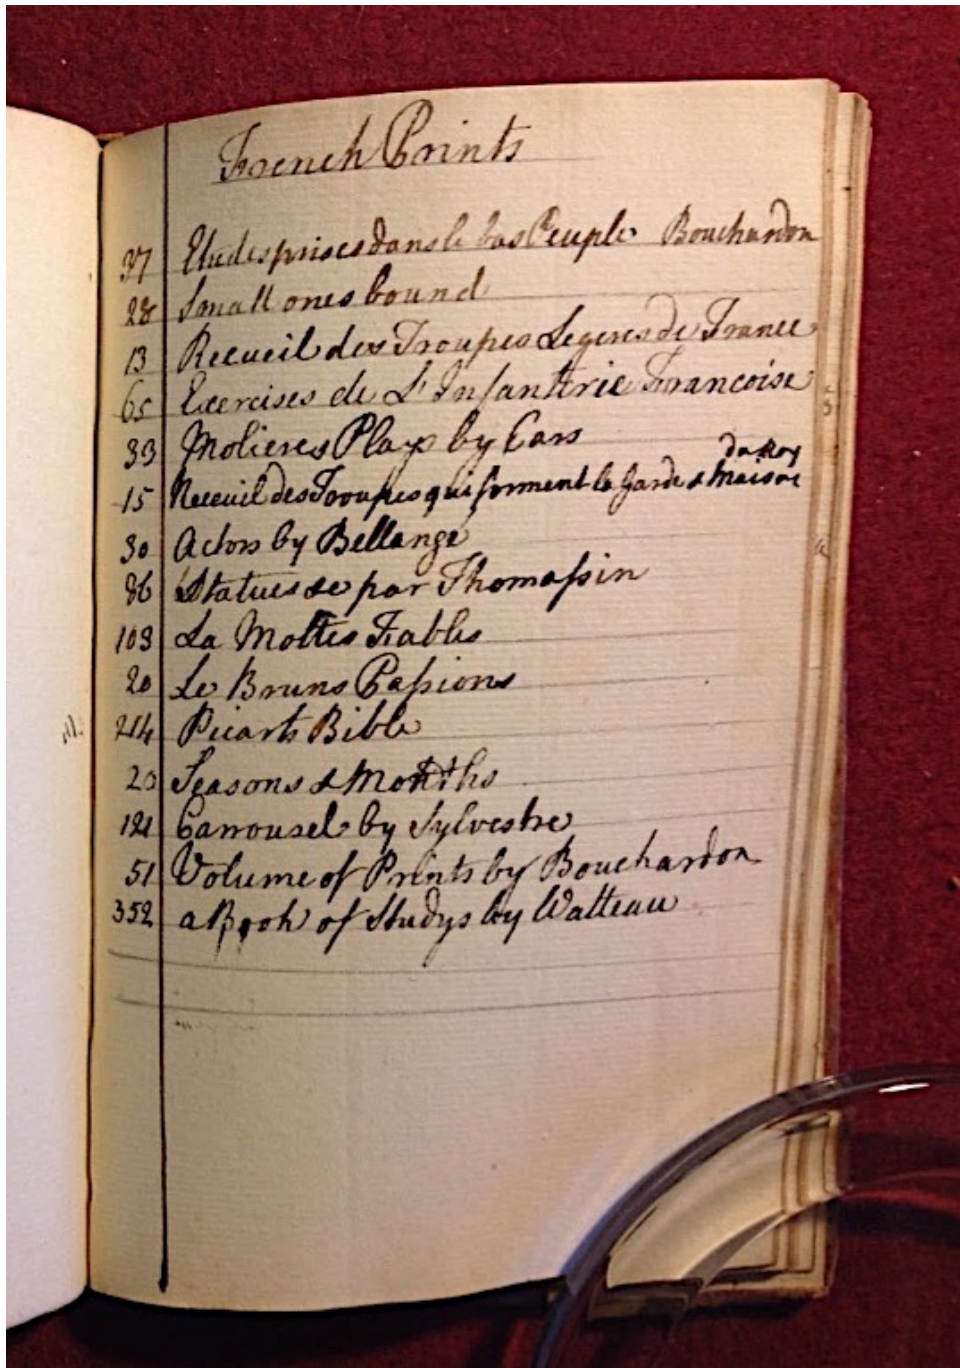 French Prints
37 Etudes prises dans le bas Peuple Bouchardon
28 Small ones bound
13 Recueil des Troupes Legeres de France
65 Exercises de L'Infantrie Francoise
33 Molieres Plays by Cars
du Roy
15 Receuil des Troupes qui forment la Garde & Maison
30 Actors by Bellange
86 Statues &c par Thomassin
103 La Mottes Fables
20 Le Bruns Passions
214 Picarts Bible
20 Seasons & Months
121 Carrousel by Sylvestre
51 Volume of Prints by Bouchardon
352 a Book of Studys by Watteau